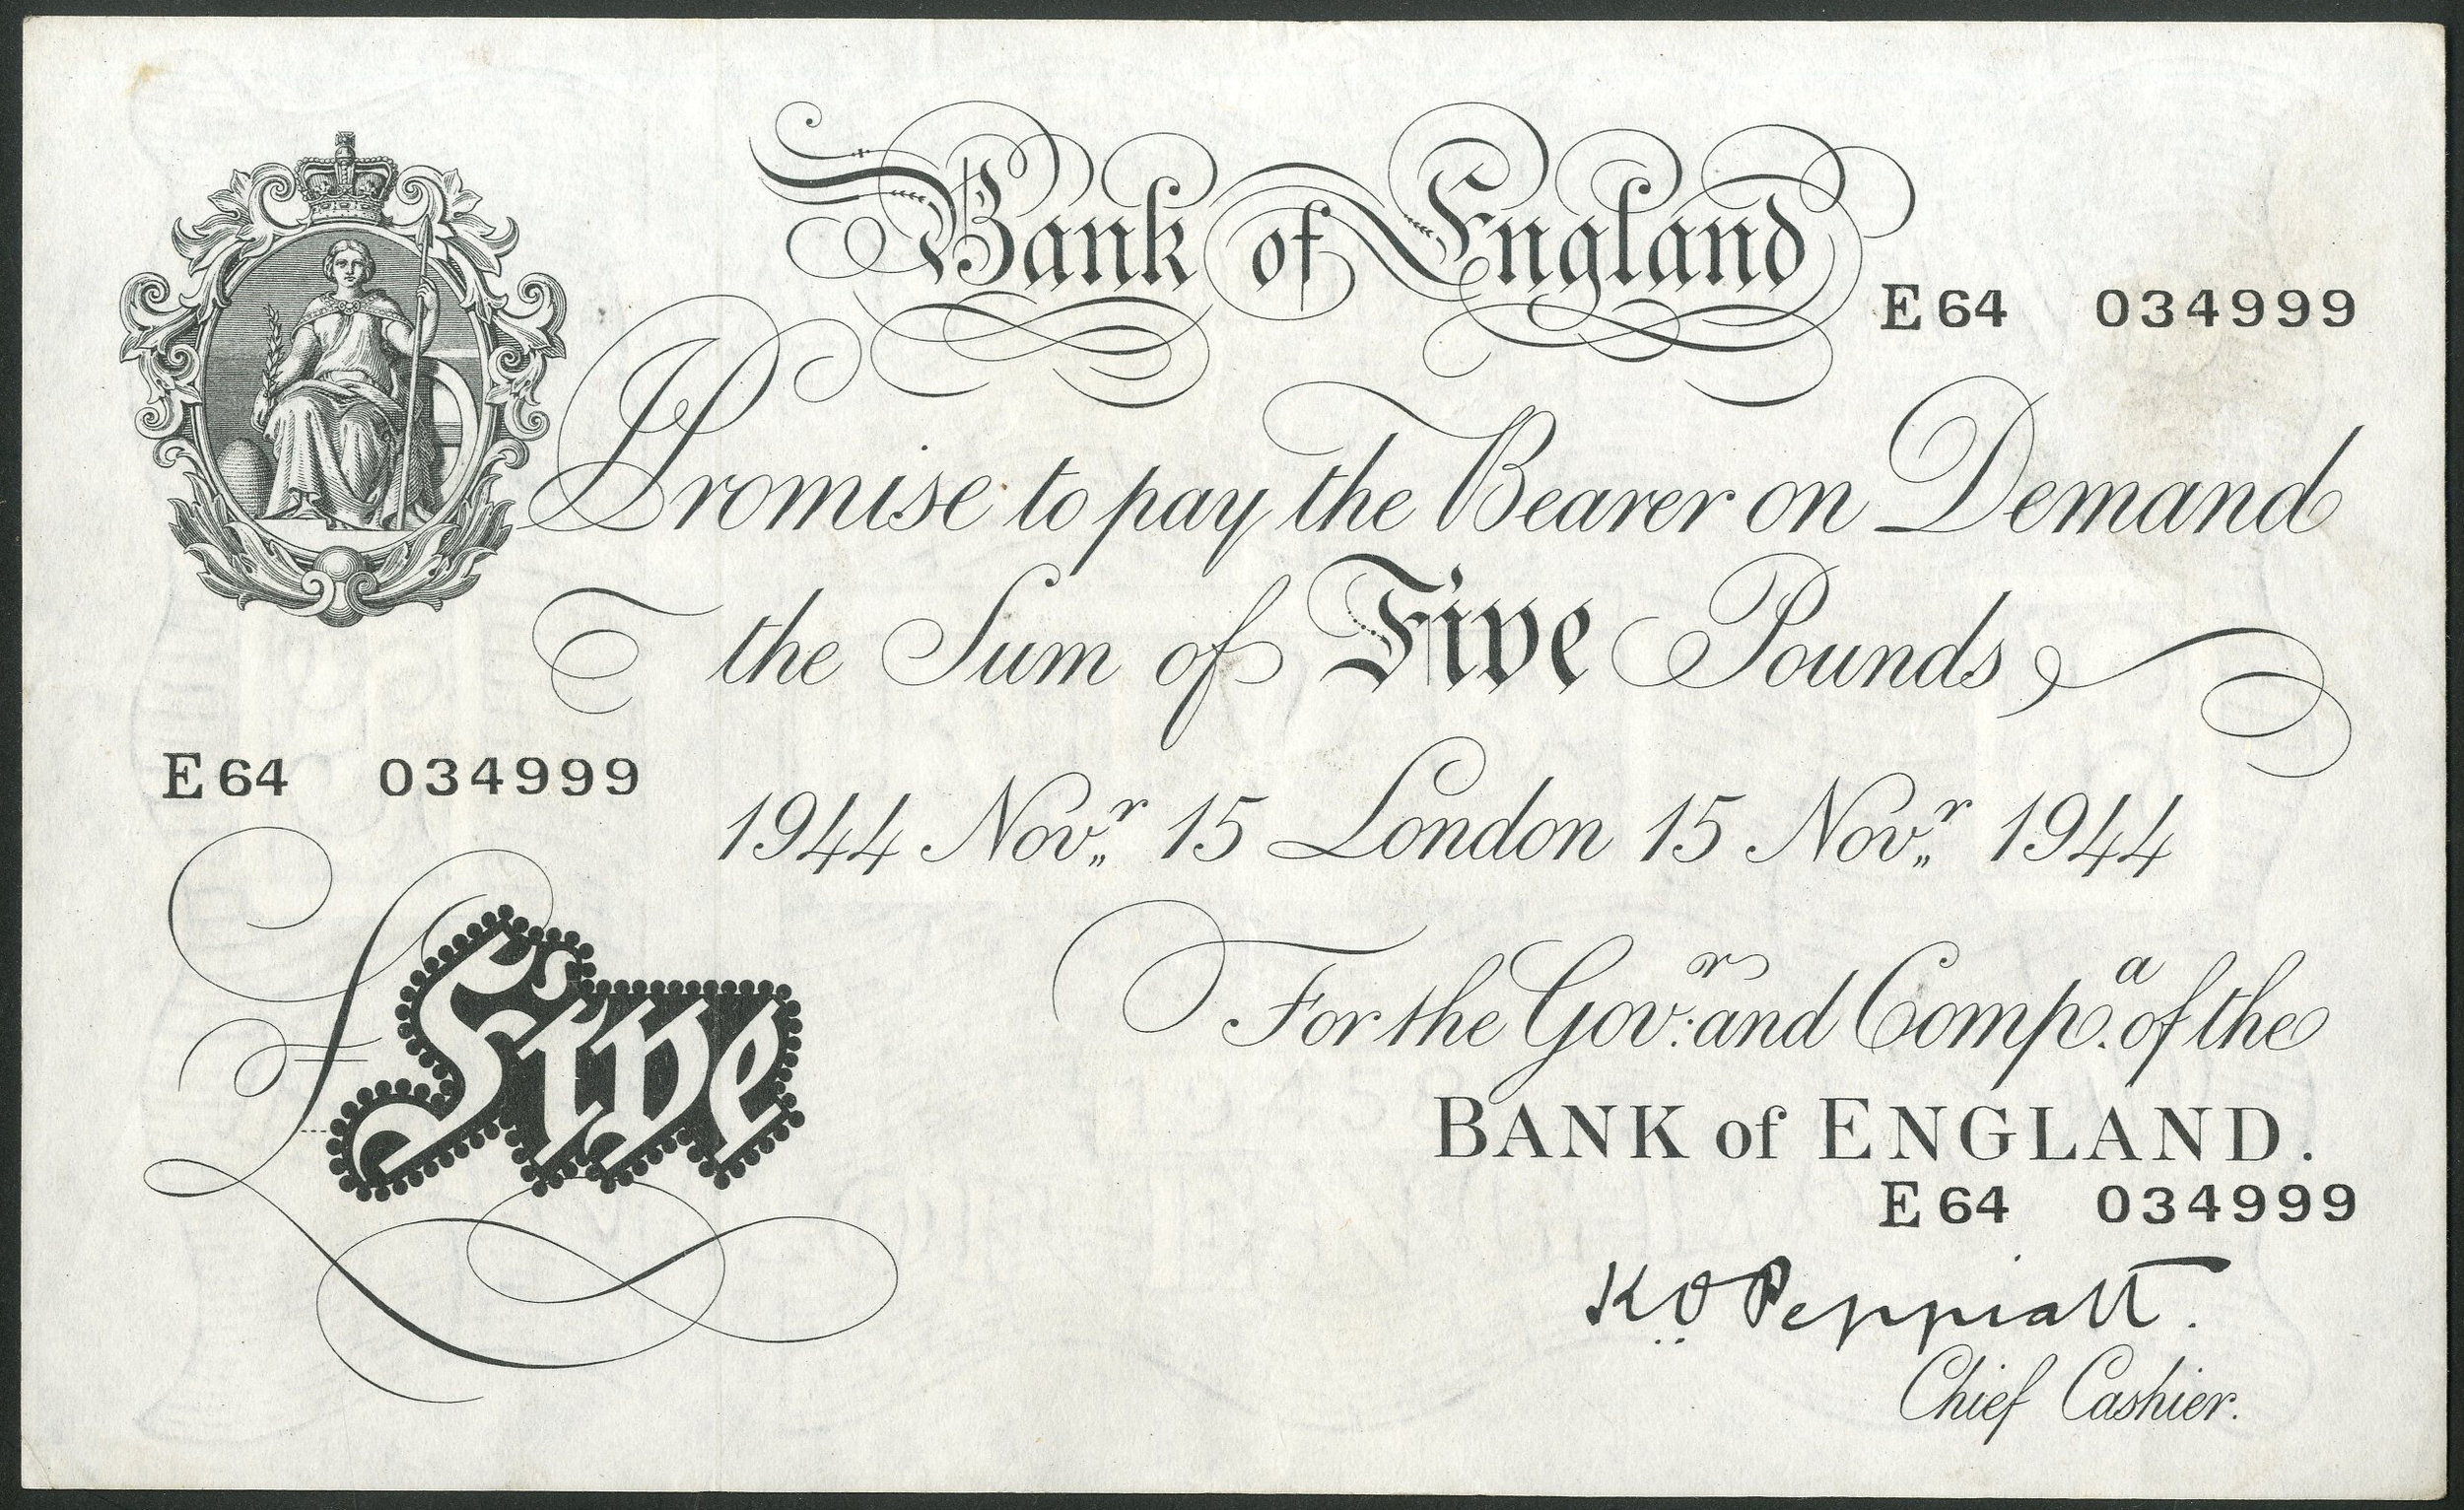 Bank of England
E 64 034999
I Promise to pay the Bearer on Demand
the Sum of Five Pounds
E 64 034999
1944 Novr 15 London 15 Novr 1944
£Five
For the Govr: and Compa. of the
BANK of ENGLAND.
E 64 034999
K.O. Peppiatt.
Chief Cashier.